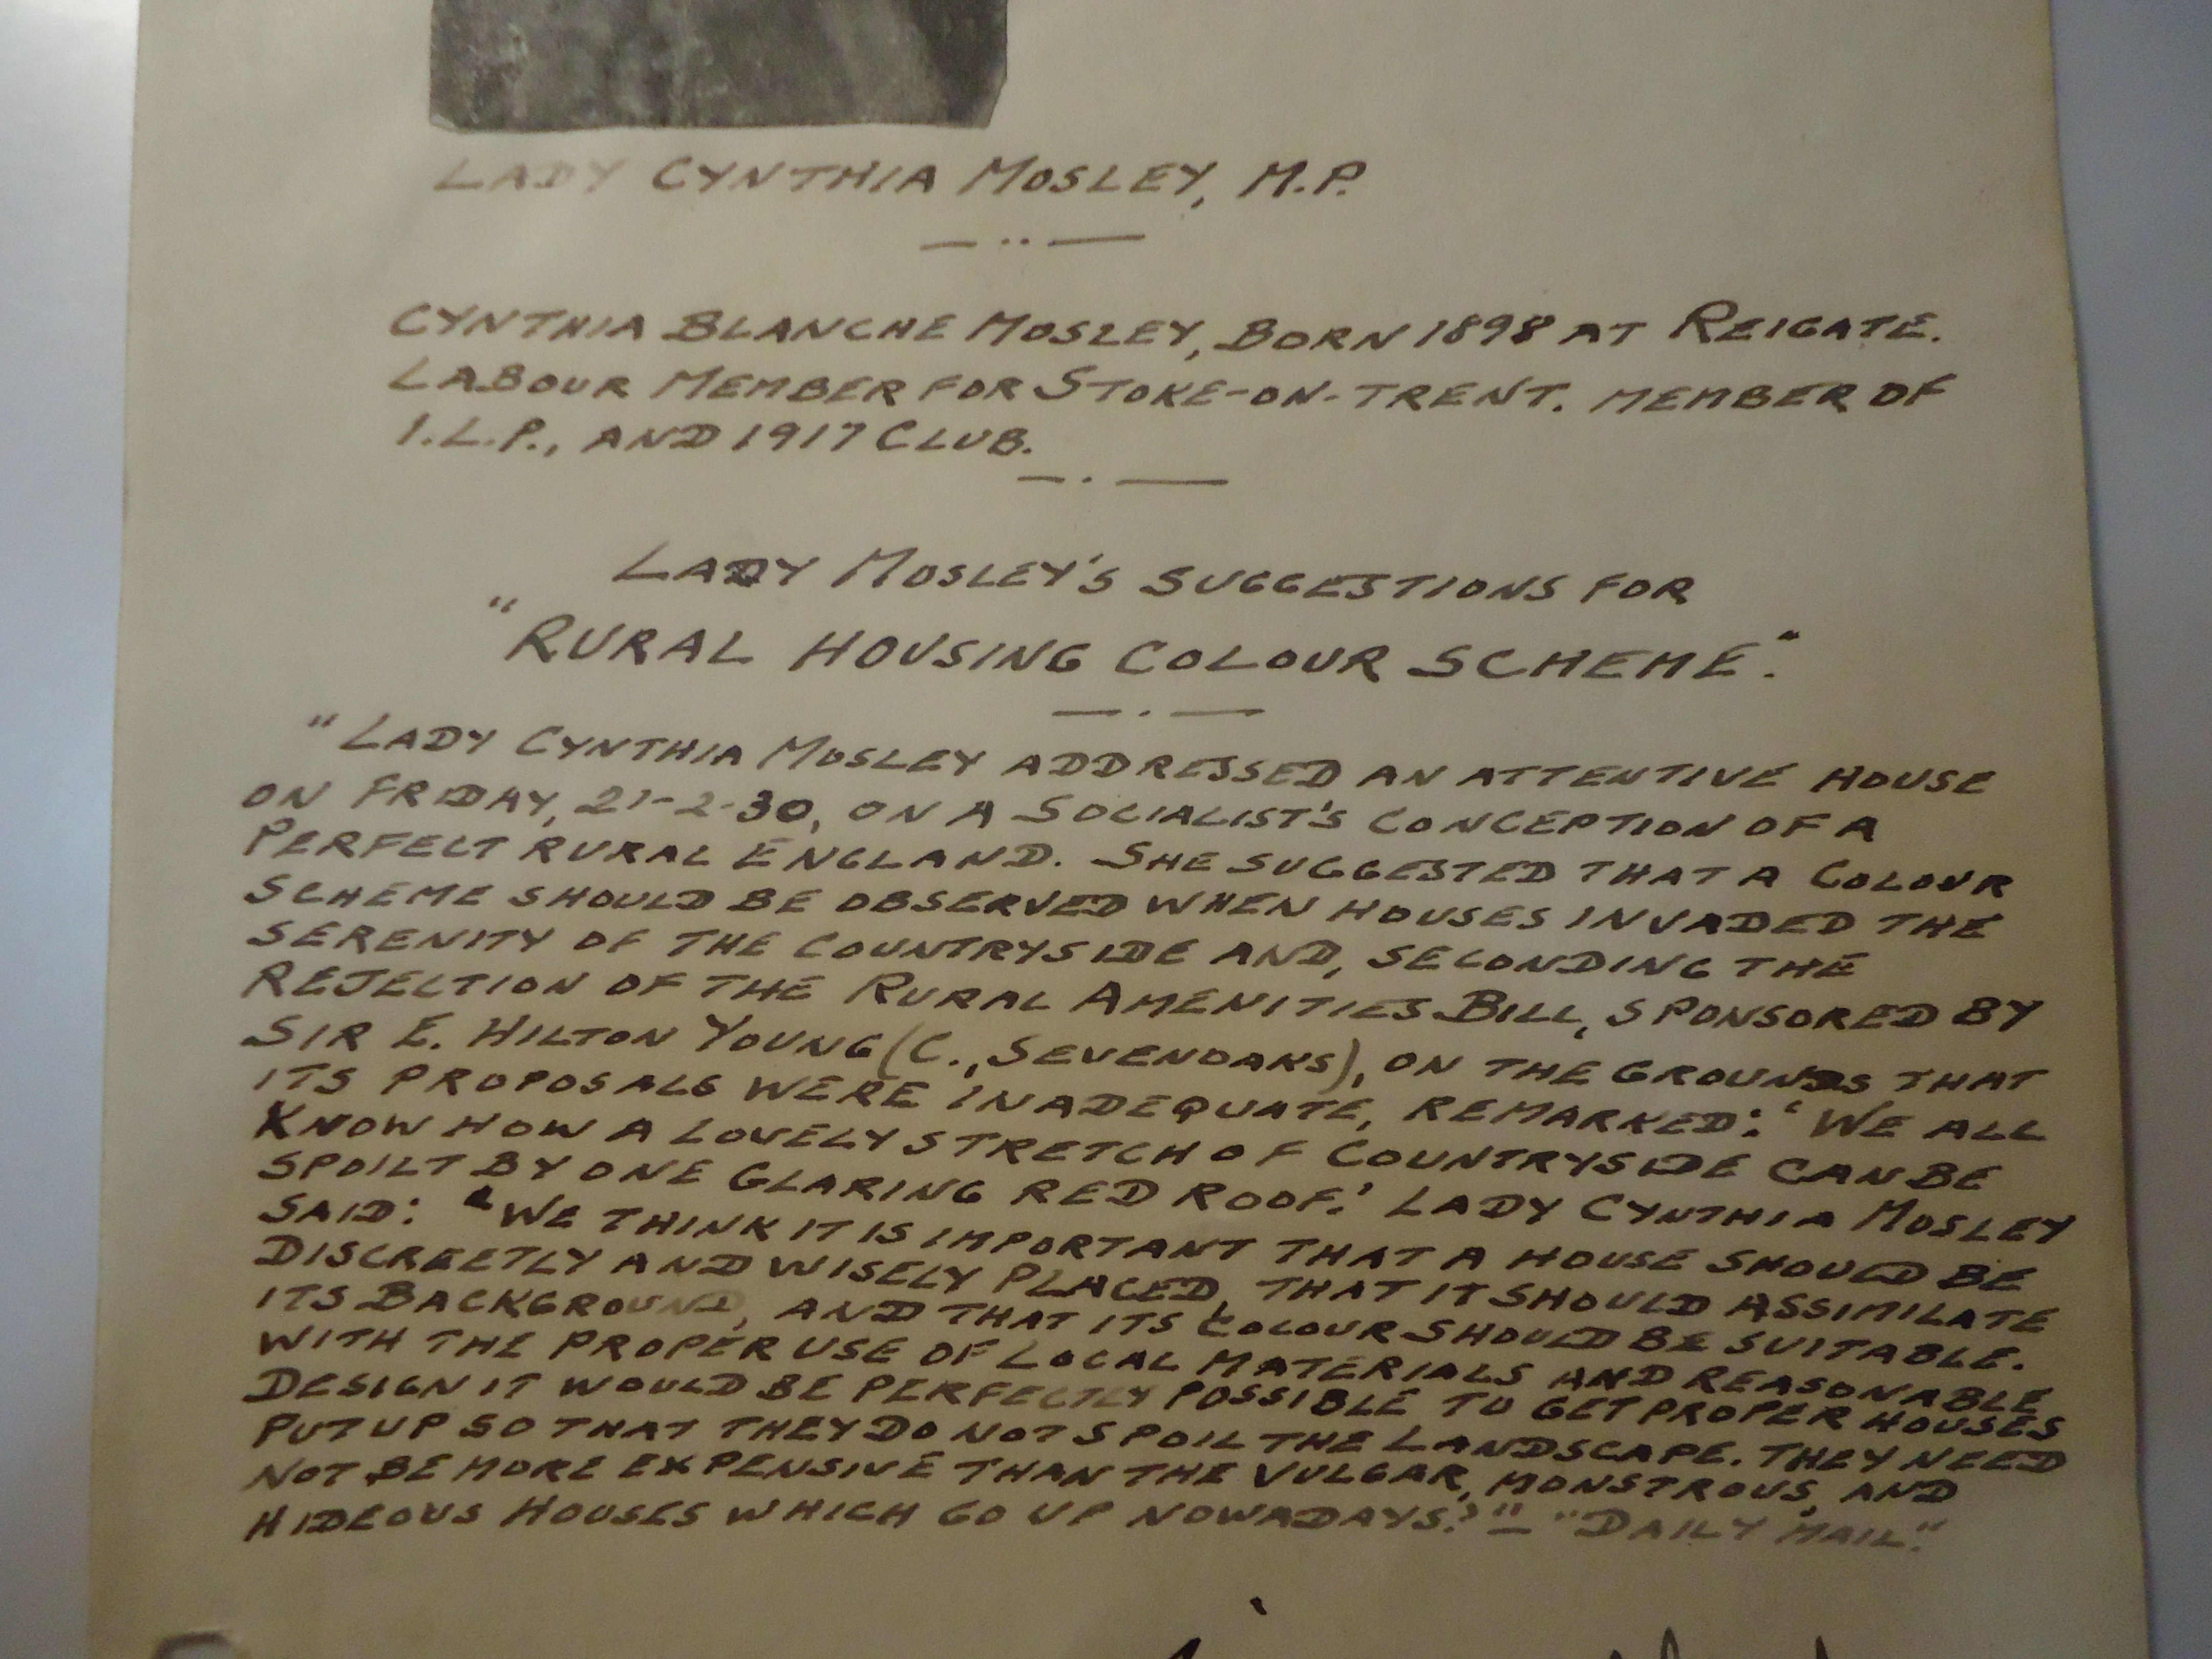 LADY CYNTHIA MOSLEY, M.P.
CYNTHIA BLANCHE MOSLEY, BORN 1898 AT REIGATE.
LABOUR MEMBER FOR STOKE-ON-TRENT. MEMBER OF
I.L.P., AND 1917 CLUB.
LADY MOSLEY'S SUGGESTIONS FOR
"RURAL HOUSING COLOUR SCHEME".
"LADY CYNTHIA MOSLEY ADDRESSED AN ATTENTIVE HOUSE
ON FRIDAY, 21-2-30, ON A SOCIALIST'S CONCEPTION OF A
PERFECT RURAL ENGLAND. SHE SUGGESTED THAT A COLOUR
SCHEME SHOULD BE OBSERVED WHEN HOUSES INVADED THE
SERENITY OF THE COUNTRYSIDE AND, SECONDING THE
REJECTION OF THE RURAL AMENITIES BILL, SPONSORED BY
SIR E. HILTON YOUNG (C., SEVENOAKS), ON THE GROUNDS THAT
ITS PROPOSALS WERE INADEQUATE, REMARKED: 'WE ALL
KNOW HOW A LOVELY STRETCH OF COUNTRYSIDE CAN BE
SPOILT BY ONE GLARING RED ROOF.' LADY CYNTHIA MOSLEY
SAID: 'WE THINK IT IS IMPORTANT THAT A HOUSE SHOULD BE
DISCREETLY AND WISELY PLACED, THAT IT SHOULD ASSIMILATE
ITS BACKGROUND, AND THAT ITS COLOUR SHOULD BE SUITABLE.
WITH THE PROPER USE OF LOCAL MATERIALS AND REASONABLE
DESIGN IT WOULD BE PERFECTLY POSSIBLE TO GET PROPER HOUSES
PUT UP SO THAT THEY DO NOT SPOIL THE LANDSCAPE. THEY NEED
NOT BE MORE EXPENSIVE THAN THE VULGAR, MONSTROUS, AND
HIDEOUS HOUSES WHICH GO UP NOWADAYS.'" — "DAILY MAIL".